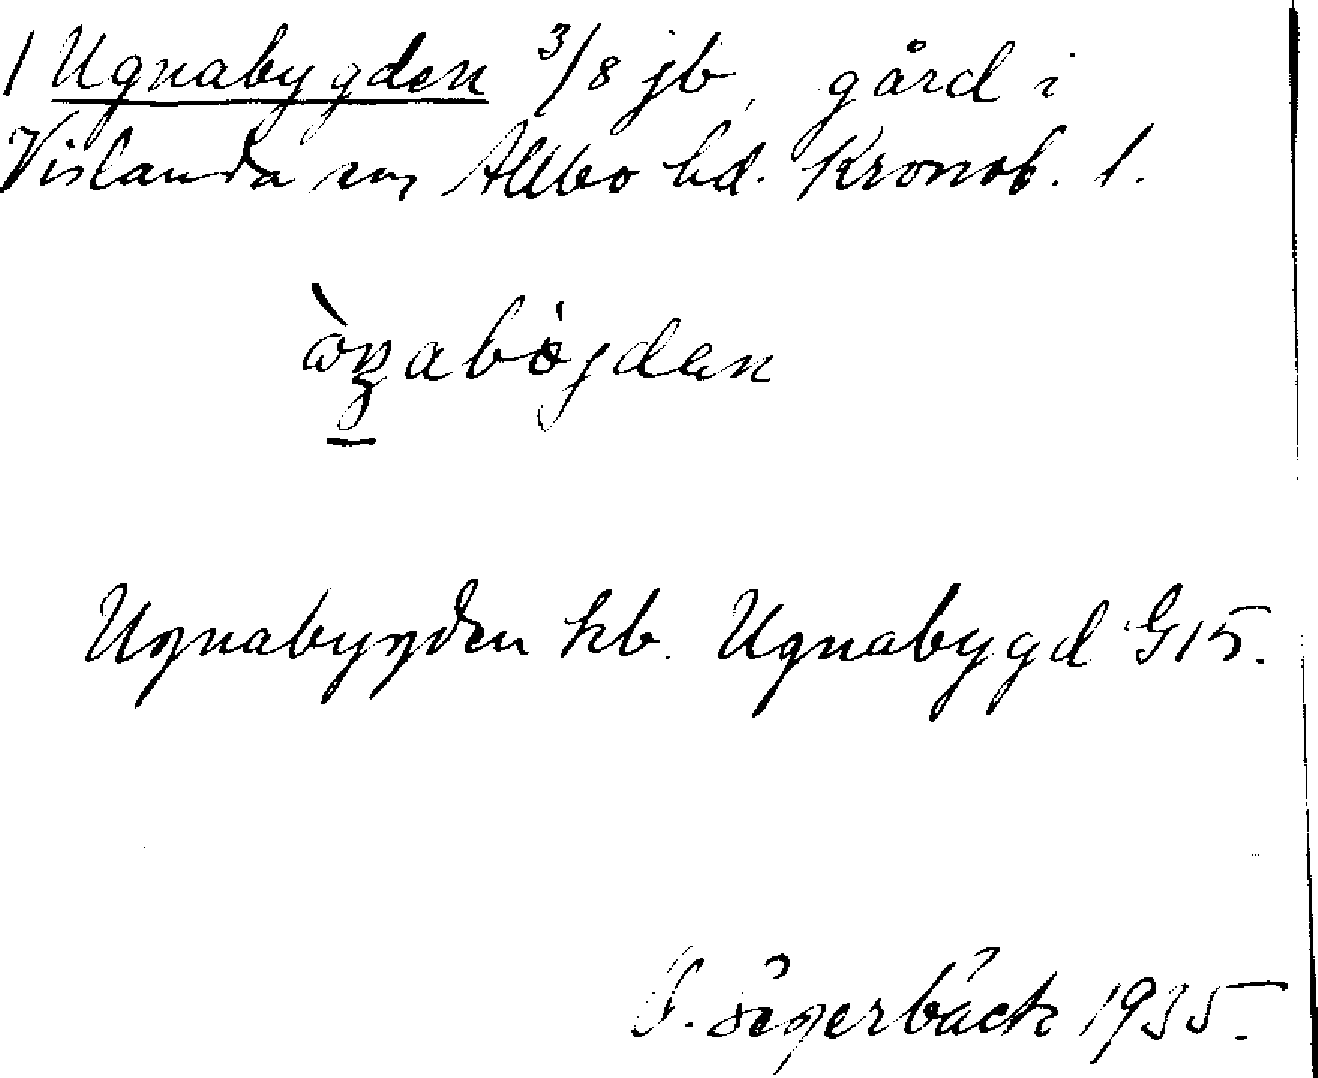 1 Ugnabygden 3/8 jb, gård i
Vislanda sn, Allbo hd. Kronob. l.
Ugnabygden kb. Ugnabygd G15.
Sägerbäck 1935.